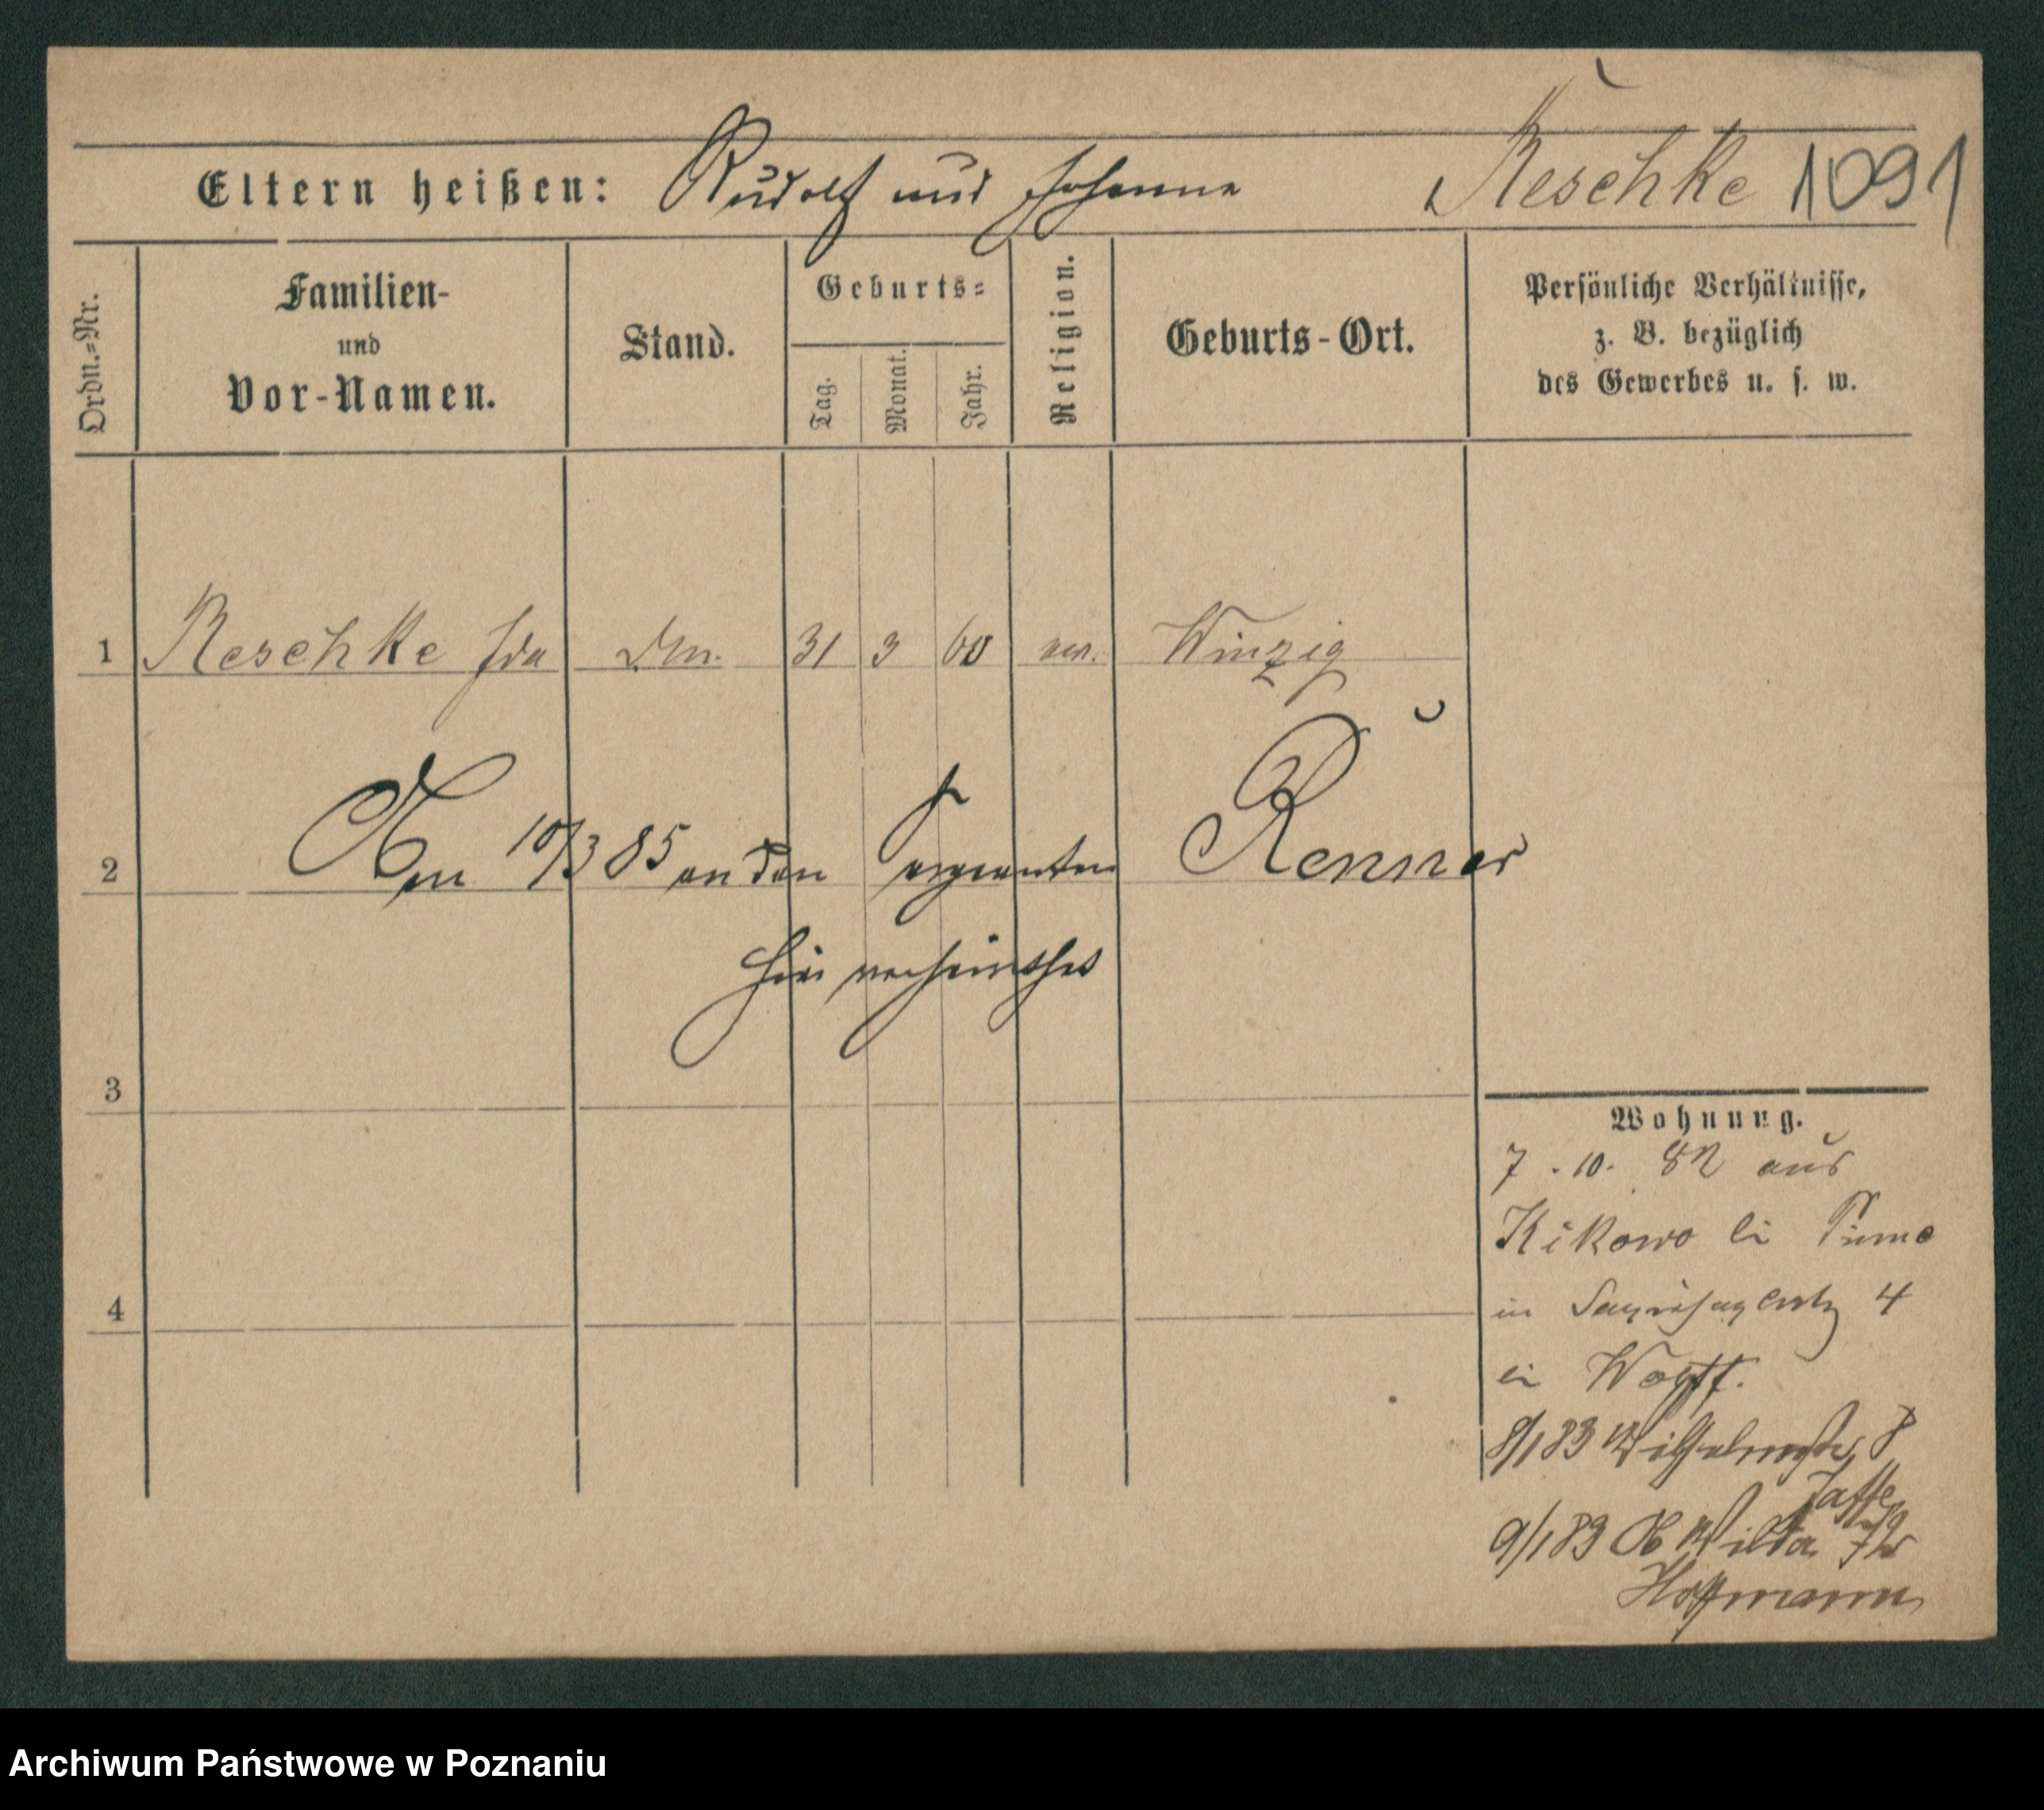 Reschke 1091
Eltern heißen: Rudolf und Johanna
Ordn.-Nr.
Familien-
und
Vor-Namen.
Stand.
Geburts-
Tag.
Monat.
Jahr.
Religion.
Geburts-Ort.
Persönliche Verhältnisse,
z. B. bezüglich
des Gewerbes u. s. w.
1 Reschke Ida 31 3 60 Winzig
2 Am 10/3 85 an den Sergeanten Renner
hier verheirathet
3
4
Wohnung.
7. 10. 82 aus
Kikowo bei Pinne
in 4
bei
8/1 83 Wilhelmstr 8
Jaffe
9/1 83 Ob Wilda
Hoffmann
Archiwum Państwowe w Poznaniu